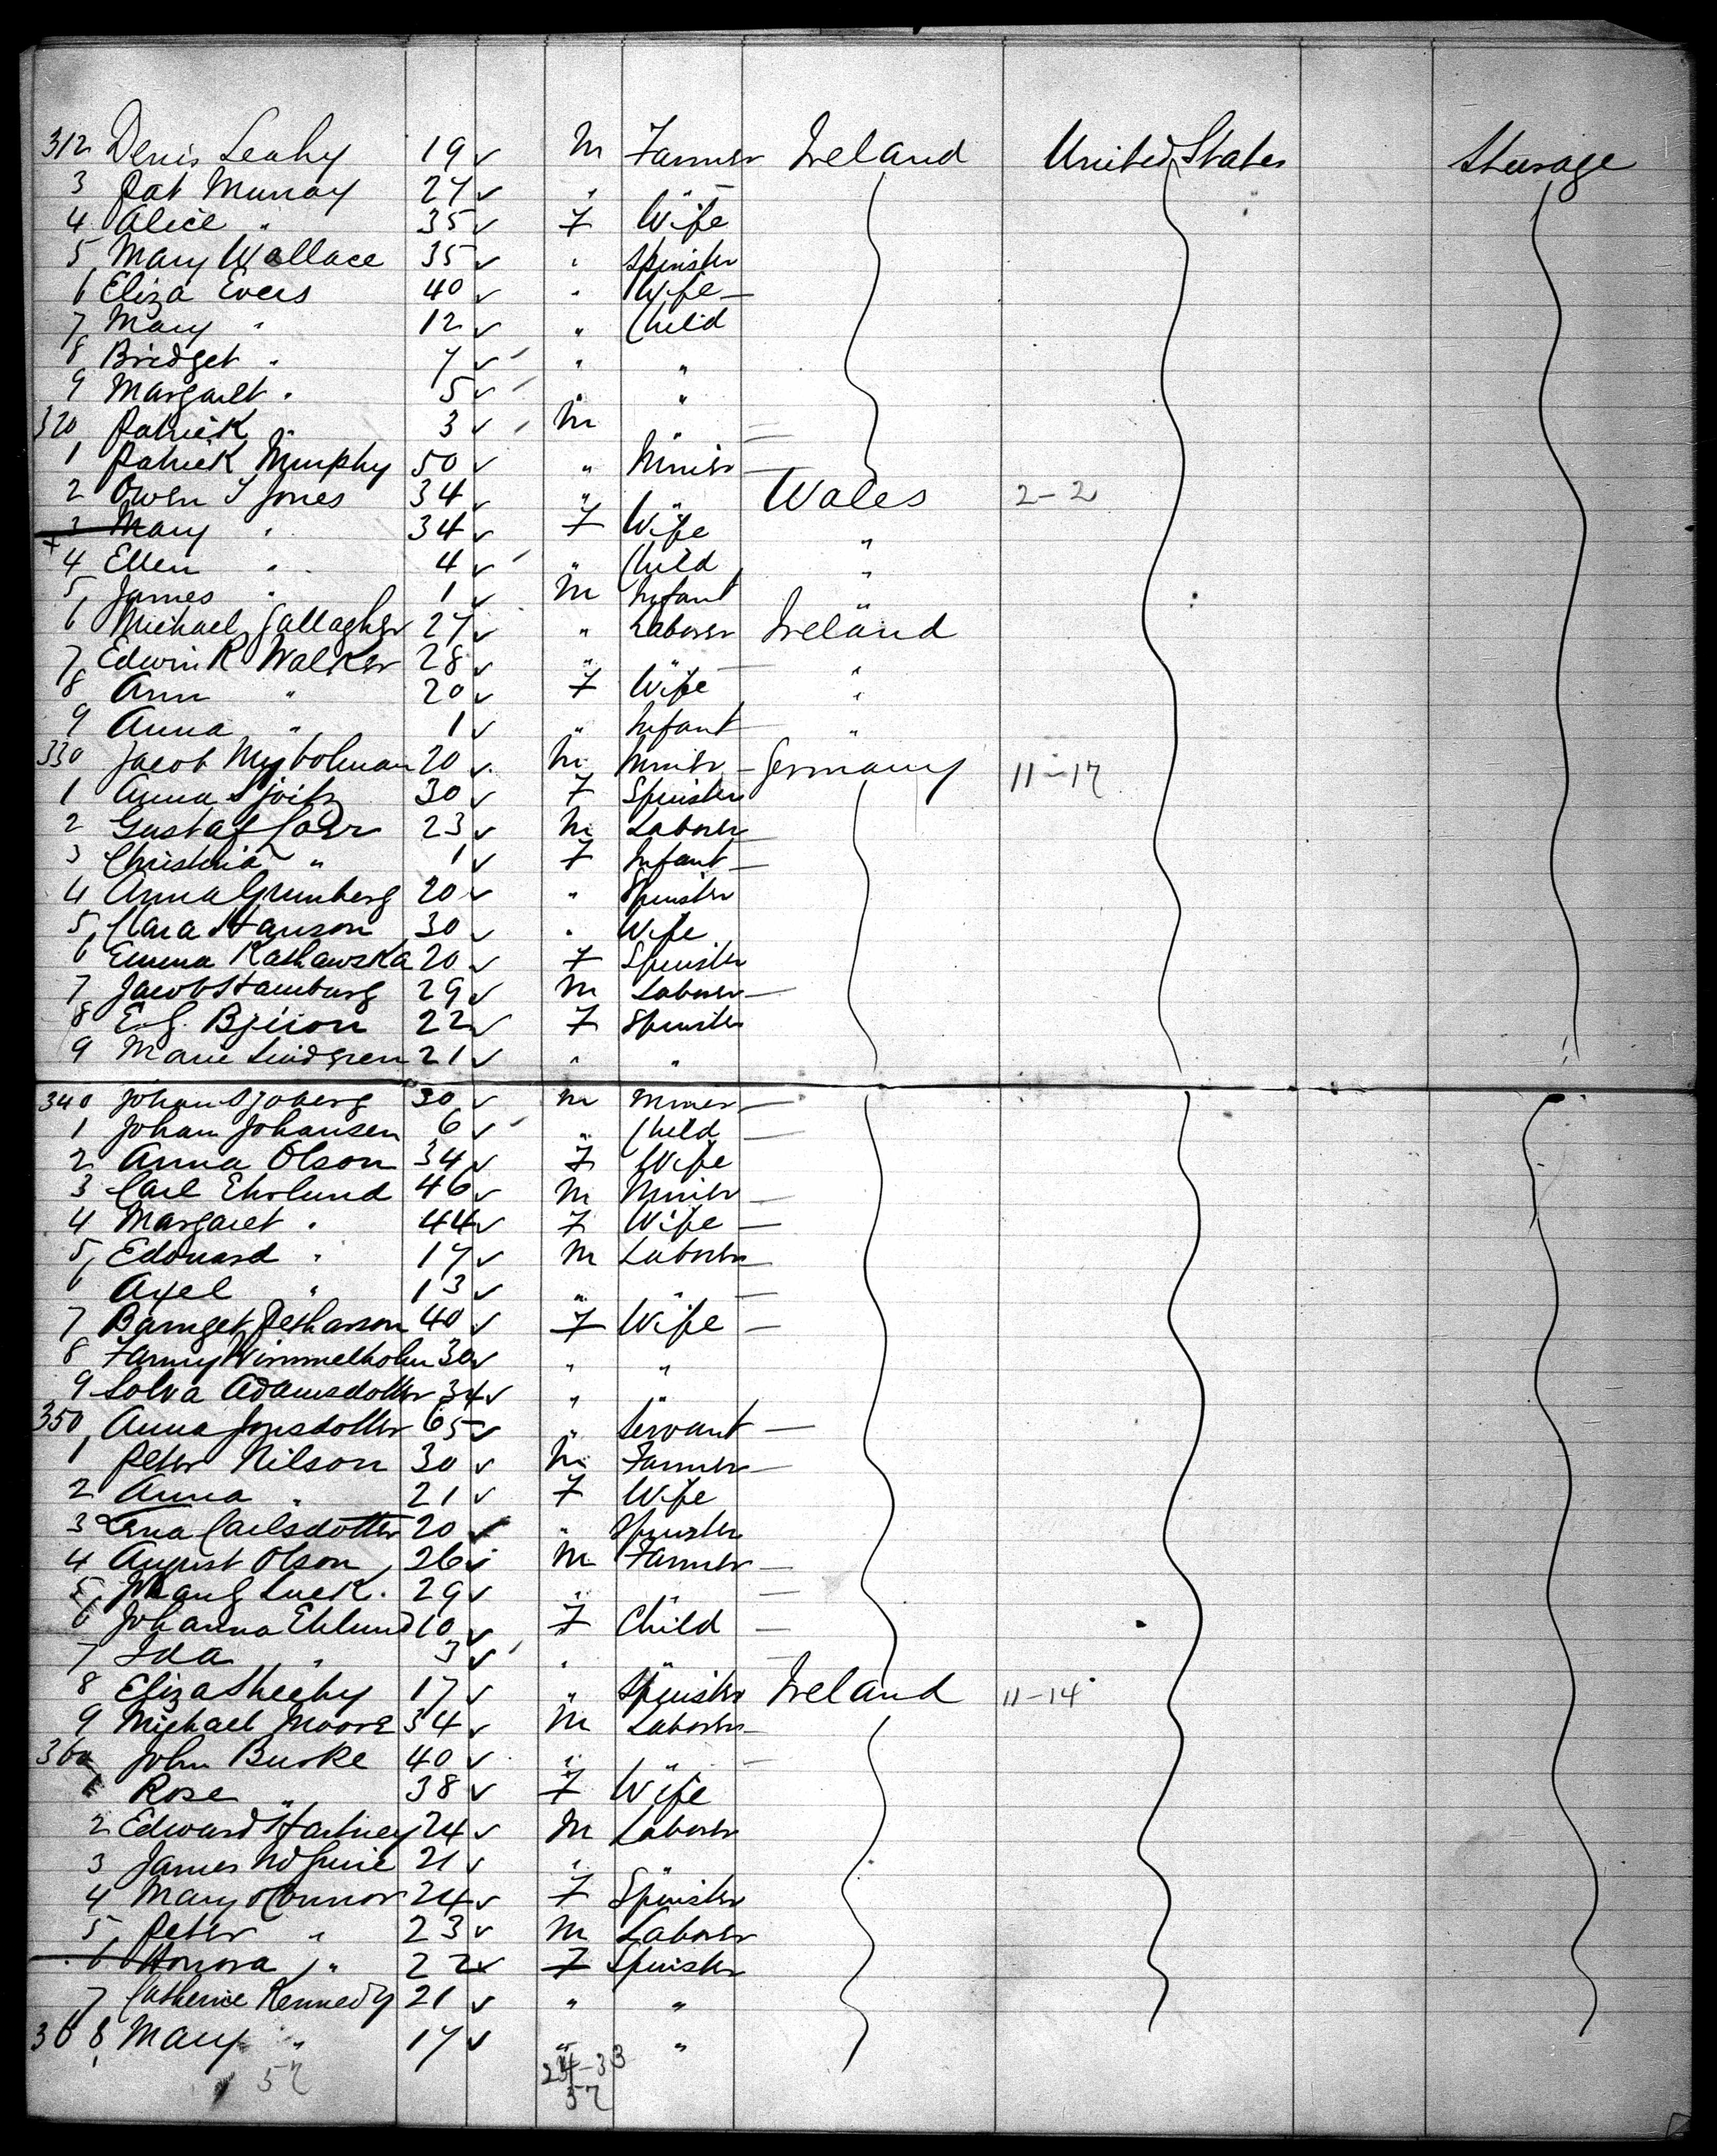 312 Denis Leahy 19 ✓ M Farmer Ireland United States Steerage
3 Pat Murray 27 ✓ " "
4 Alice " 35 ✓ F Wife
5 Mary Wallace 35 ✓ " Spinster
6 Eliza Evers 40 ✓ " Wife
7 Mary " 12 ✓ " Child
8 Bridget " 7 ✓ " "
9 Margaret " 5 ✓ " "
320 Patrick " 3 ✓ M "
1 Patrick Murphy 50 ✓ " Miner
2 Owen J Jones 34 ✓ " " Wales 2-2
3 Mary " 34 ✓ F Wife "
4 Ellen " 4 ✓ " Child "
5 James " 1 ✓ M Infant "
6 Michael Gallagher 27 ✓ " Laborer Ireland
7 Edwin R Walker 28 ✓ " " "
8 Ann " 20 ✓ F Wife "
9 Anna " 1 ✓ " Infant "
330 Jacob 20 ✓ M Miner Germany 11-17
1 Anna 30 ✓ F Spinster
2 Gustaf 23 ✓ M Laborer
3 Christina " 1 ✓ F Infant
4 Anna Grunberg 20 ✓ " Spinster
5 Clara Hanson 30 ✓ " Wife
6 Emma Kathawska 20 ✓ F Spinster
7 Jacob Hamburg 29 ✓ M Laborer
8 E. G. 22 ✓ F Spinster
9 Marie Lindgren 21 ✓ " "
340 Johan Sjoberg 30 ✓ M Miner
1 Johan Johansen 6 ✓ " Child
2 Anna Olson 34 ✓ F Wife
3 Carl Ehrlund 46 ✓ M Miner
4 Margaret " 44 ✓ F Wife
5 Edouard " 17 ✓ M Laborer
6 Axel " 13 ✓ " "
7 40 ✓ F Wife
8 Fanny Wimmelholm 30 ✓ " "
9 Lolva Adamsdotter 34 ✓ " "
350 Anna Jonsdotter 65 ✓ " Servant
1 Peter Nilson 30 ✓ M Farmer
2 Anna " 21 ✓ F Wife
3 Lena Carlsdotter 20 ✓ " Spinster
4 August Olson 26 ✓ M Farmer
5 29 ✓ " "
6 Johanna Ehlund 10 ✓ F Child
7 Ida " 3 ✓ " "
8 Eliza Sheehy 17 ✓ " Spinster Ireland 11-14
9 Michael Moore 34 ✓ M Laborer
360 John Burke 40 ✓ " "
1 Rose " 38 ✓ F Wife
2 Edward Hartney 24 ✓ M Laborer
3 James McGuire 21 ✓ " "
4 Mary O'Connor 24 ✓ F Spinster
5 Peter " 23 ✓ M Laborer
6 Honora " 22 ✓ F Spinster
7 Catherine Kennedy 21 ✓ " "
368 Mary " 17 ✓ " "
57 24-33
57